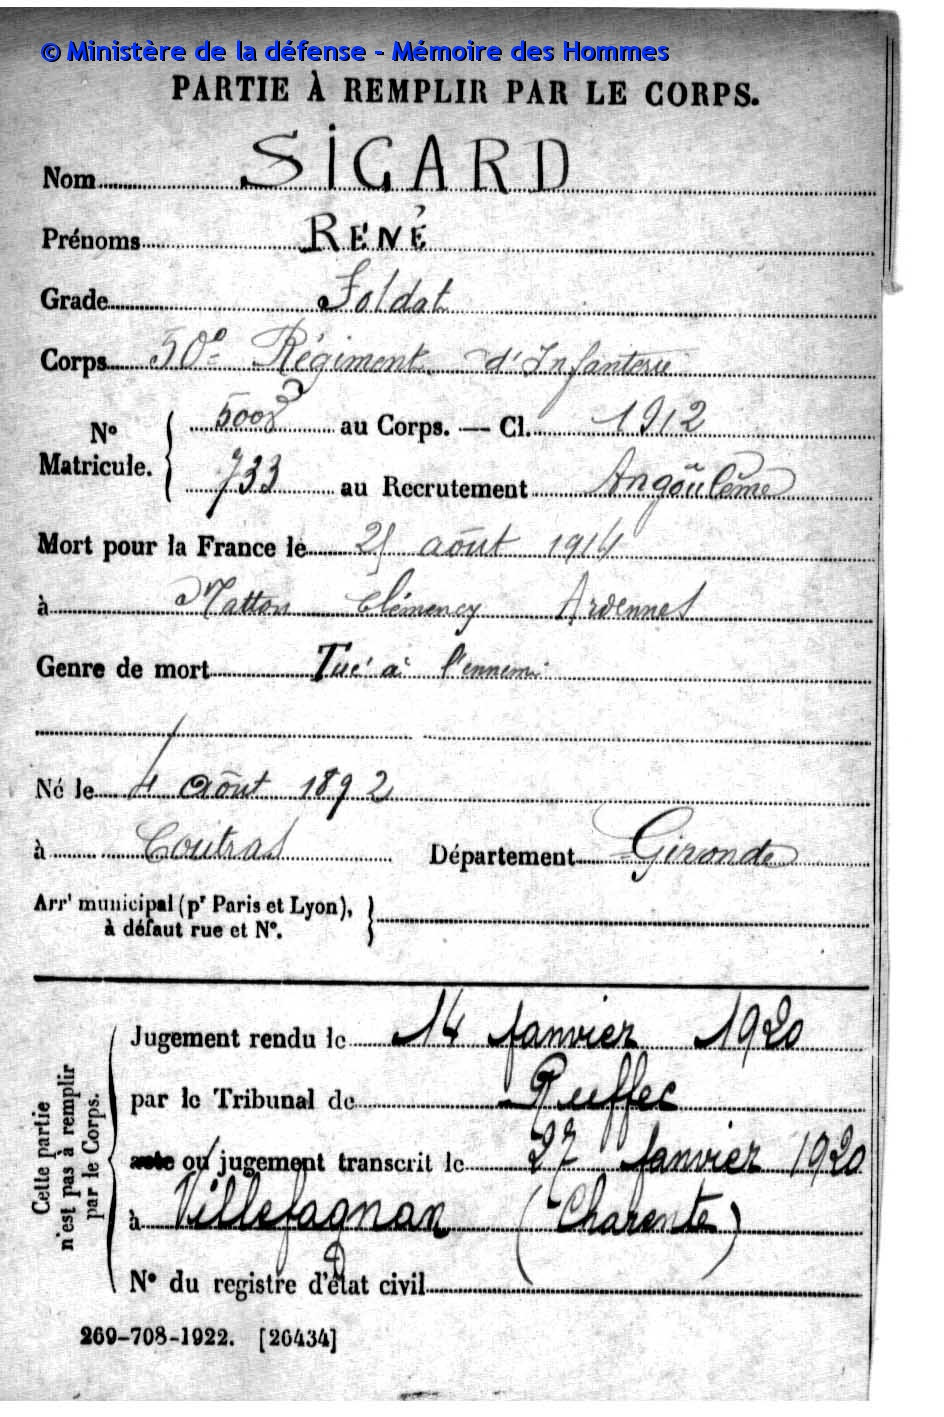 © Ministère de la défense - Mémoire des Hommes
PARTIE À REMPLIR PAR LE CORPS.
Nom SIGARD
Prénoms RENÉ
Grade Soldat
Corps 50e Régiment d'Infanterie
N° Matricule. 5008 au Corps. — Cl. 1912
733 au Recrutement Angoulême
Mort pour la France le août 1914
à Matton Clémency Ardennes
Genre de mort Tué à l'ennemi
Né le 4 août 1892
à Coutras Département Gironde
Arrt municipal (pr Paris et Lyon),
à défaut rue et N°.
Cette partie
n'est pas à remplir
par le Corps.
Jugement rendu le 14 Janvier 1920
par le Tribunal de Ruffec
acte ou jugement transcrit le 27 Janvier 1920
à Villefagnan (Charente)
N° du registre d'état civil
269-708-1922. [26434]